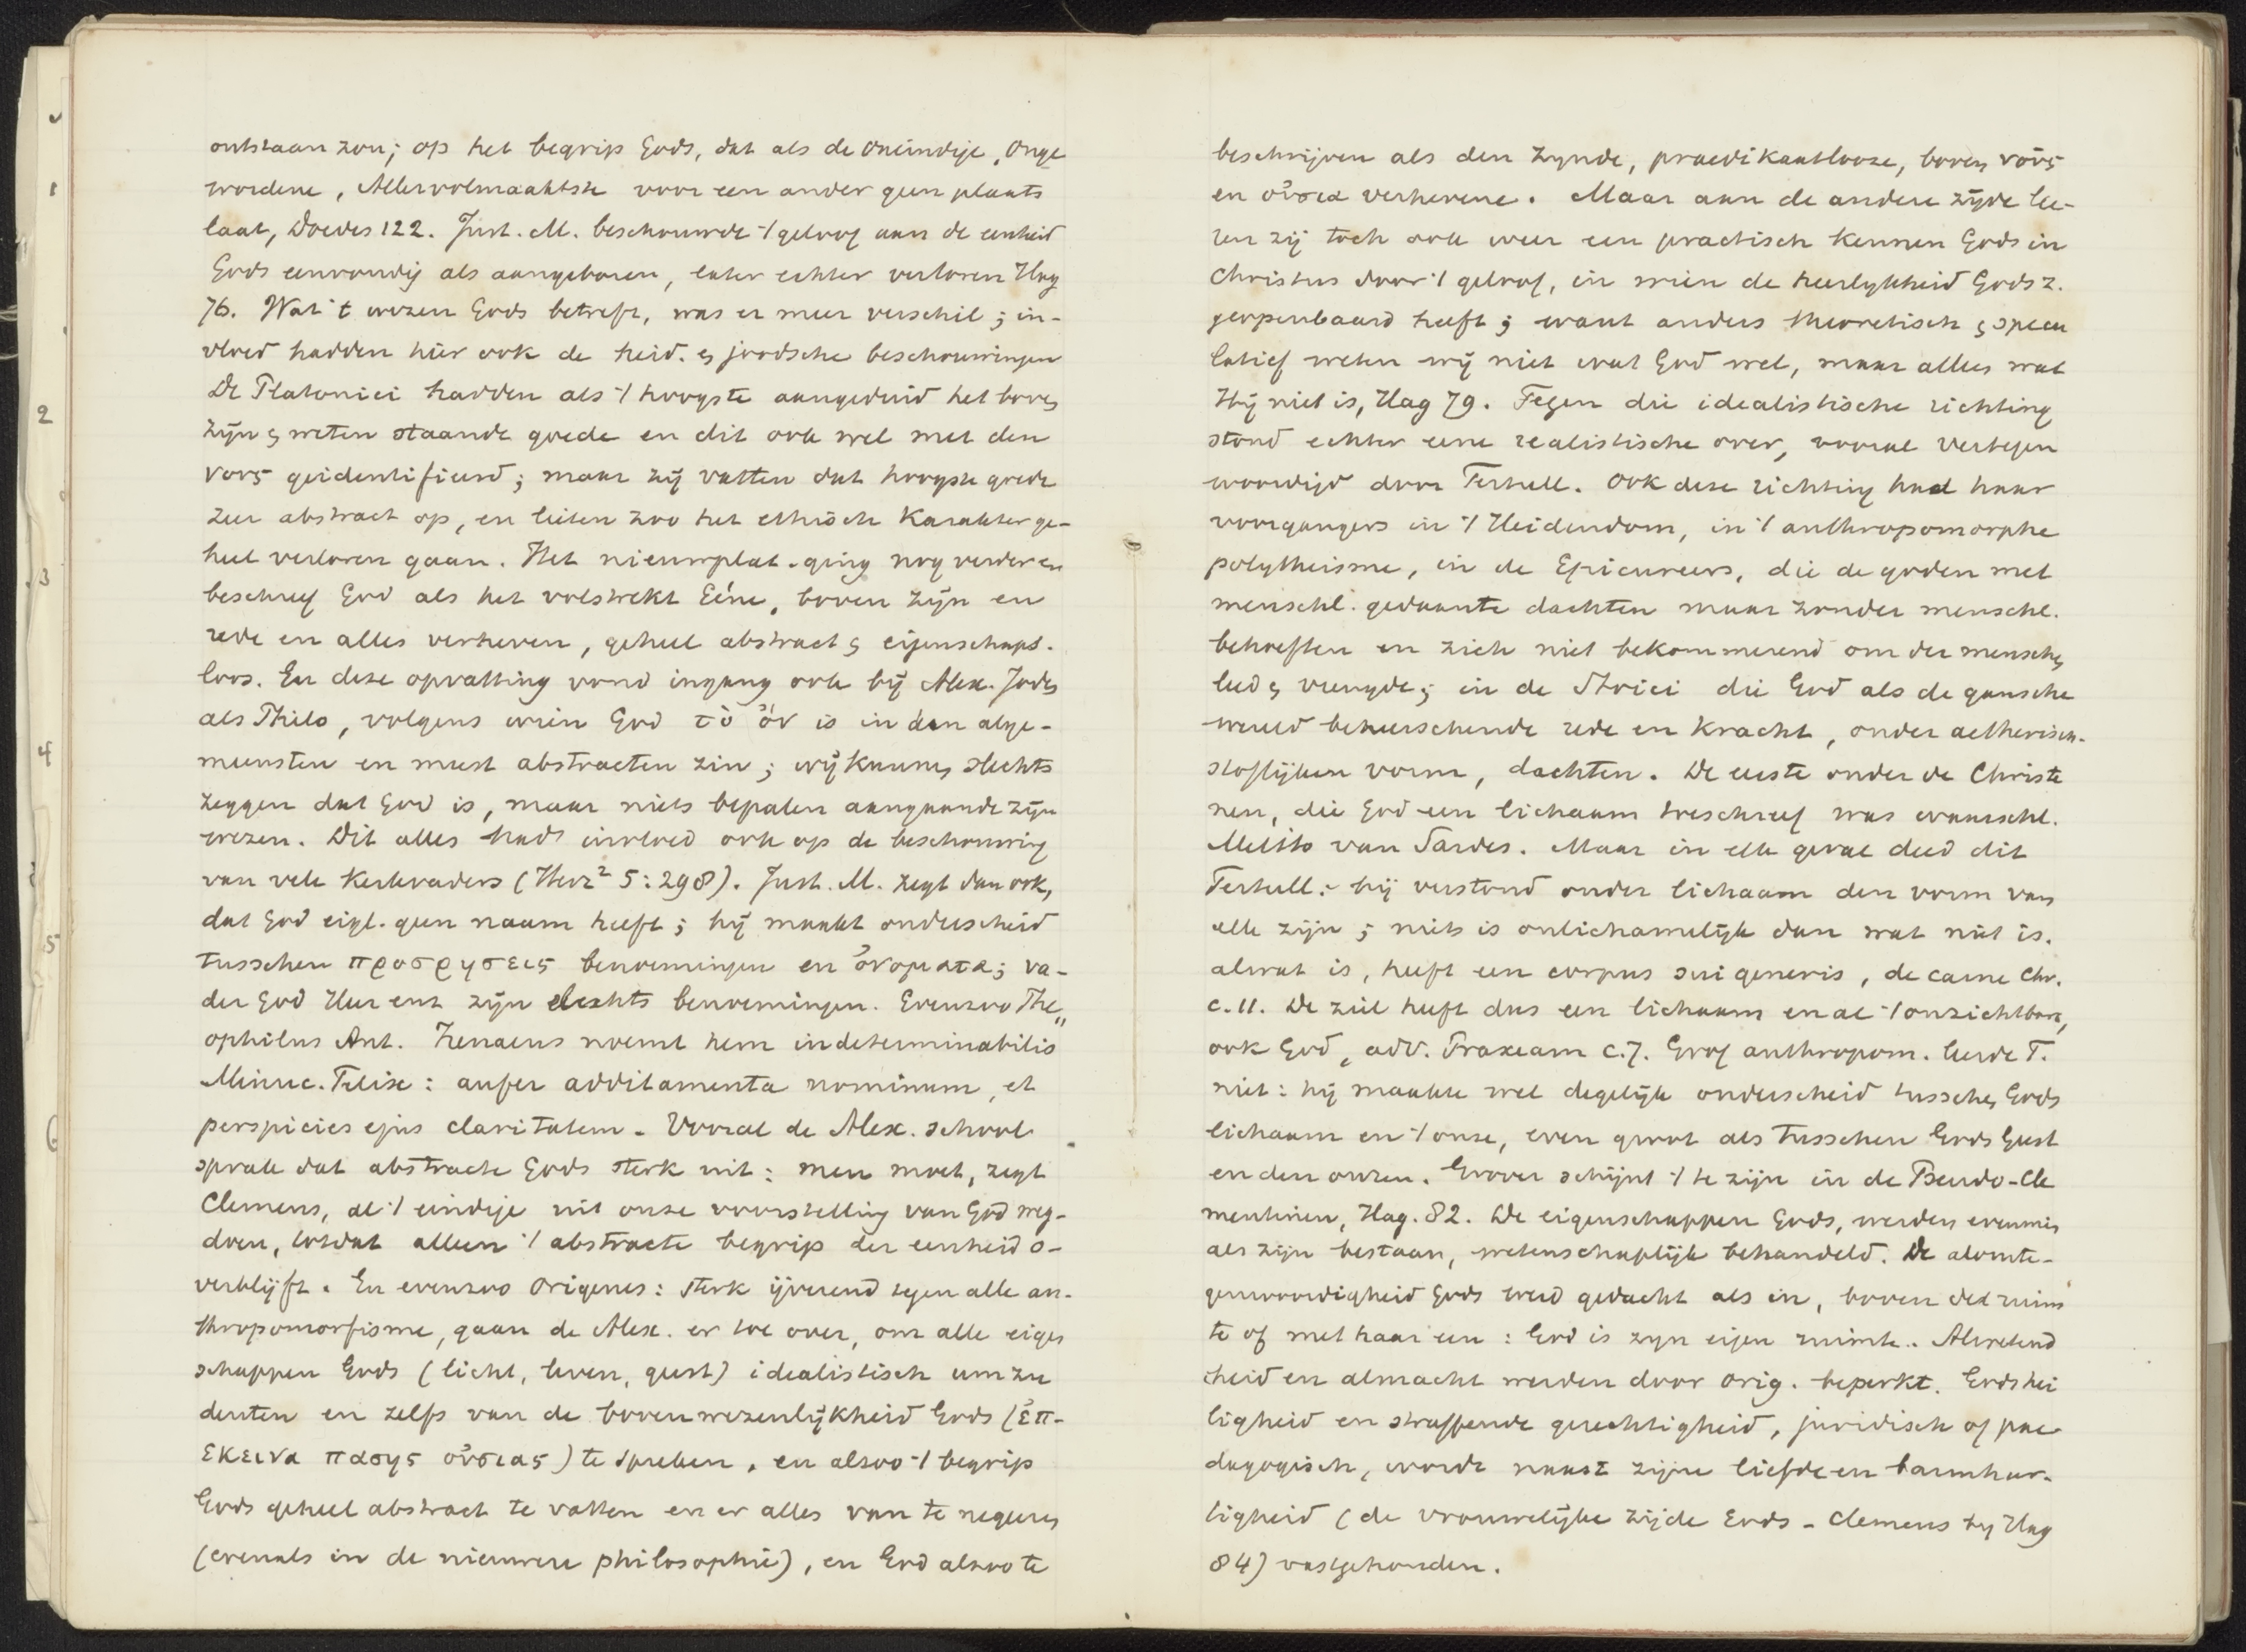 ontstaan zou; op het begrip Gods, dat als de Oneindige, Onge
wordene, Allervolmaaktste voor een ander geen plaats
laat, Doedes 122. Just. M. beschouwde 't geloof aan de eenheid
Gods eenvoudig als aangeboren, later echter verloren Hag
76. Wat 't wezen Gods betreft, was er meer verschil; in-
vloed hadden hier ook de heid. en joodsche beschouwingen
De Platonici hadden als 't hoogste aangeduid het boven
zijn en weten staande goede en dit ook wel met den
νους geidentificeerd; maar zij vatten dat hoogste goede
zeer abstract op, en lieten zoo het ethisch karakter ge-
heel verloren gaan. Het nieuwplat. ging nog verder en
beschreef God als het volstrekt Eéne, boven zijn en
rede en alles verheven, geheel abstract en eigenschaps-
loos. En deze opvatting vond ingang ook bij Alex. Joden
als Philo, volgens wien God τὸ ὄν is in den alge-
meensten en meest abstracten zin; wij kunnen slechts
zeggen dat God is, maar niets bepalen aangaande zijn
wezen. Dit alles had invloed ook op de beschouwing
van vele Kerkvaders (Herz² 5:298). Just. M. zegt dan ook,
dat God eigl. geen naam heeft; hij maakt onderscheid
tusschen προσρησεις benoemingen en ὀνοματα; va-
der God Heer enz zijn slechts benoemingen. Evenzoo The„
ophilus Ant. Irenaeus noemt hem indeterminabilis
Minuc. Felix: aufer additamenta nominum, et
perspicies ejus claritatem. Vooral de Alex. school
sprak dat abstracte Gods sterk uit: men moet, zegt
Clemens, al 't eindige uit onze voorstelling van God weg-
doen, totdat alleen 't abstracte begrip der eenheid o-
verblijft. En evenzoo Origenes: sterk ijverend tegen alle an-
thropomorfisme, gaan de Alex. er toe over, om alle eigen
schappen Gods (licht, leven, geest) idealistisch um zu
deuten en zelfs van de bovenwezenlijkheid Gods (ἐπ-
εκεινα πασης οὐσιας) te spreken, en alzoo 't begrip
Gods geheel abstract te vatten en er alles van te negeeren
(evenals in de nieuwere philosophie), en God alzoo te
beschrijven als den zynde, praedikaatlooze, boven νοῦς
en οὐσια verhevene. Maar aan de andere zijde lee-
ren zij toch ook weer een practisch kennen Gods in
Christus door 't geloof, in wien de heerlykheid Gods z.
geopenbaard heeft; want anders theoretisch en specu
latief weten wij niet wat God wel, maar alles wat
Hij niet is, Hag 79. Tegen die idealistische richting
stond echter eene realistische over, vooral vertegen
woordigd door Tertull. Ook deze richting had haar
voorgangers in 't Heidendom, in 't anthropomorphe
polytheisme, in de Epicureers, die de goden met
menschl. gedaante dachten maar zonder menschl.
behoeften en zich niet bekommerend om der menschen
leed en vreugde; in de Stoici die God als de gansche
wereld beheerschende rede en kracht, onder aetherisch-
stoflijken vorm, dachten. De eerste onder de Christe
nen, die God een lichaam toeschreef was waarschl.
Melito van Sardes. Maar in elk geval deed dit
Tertull.: hij verstond onder lichaam den vorm van
elk zijn; niets is onlichamelijk dan wat niet is.
alwat is, heeft een corpus sui generis, de carne Chr.
c.11. De ziel heeft dus een lichaam en al 't onzichtbare,
ook God, adv. Praxeam c.7. Grof anthropom. leerde T.
niet: hij maakte wel degelijk onderscheid tusschen Gods
lichaam en 't onze, even groot als tusschen Gods Geest
en den onzen. Grover schijnt 't te zijn in de Pseudo-Cle
mentinen, Hag. 82. De eigenschappen Gods, werden evenmin
als zijn bestaan, wetenschaplijk behandeld. De alomte-
genwoordigheid Gods werd gedacht als in, boven de ruim
te of met haar een: God is zyn eigen ruimte. Alwetend
heid en almacht werden door Orig. beperkt. Gods hei
ligheid en straffende gerechtigheid, juridisch of pae
dagogisch, werde naast zijne liefde en barmhar-
tigheid (de vrouwelijke zijde Gods - Clemens by Hag
84) vastgehouden.
1
2
3
4
5